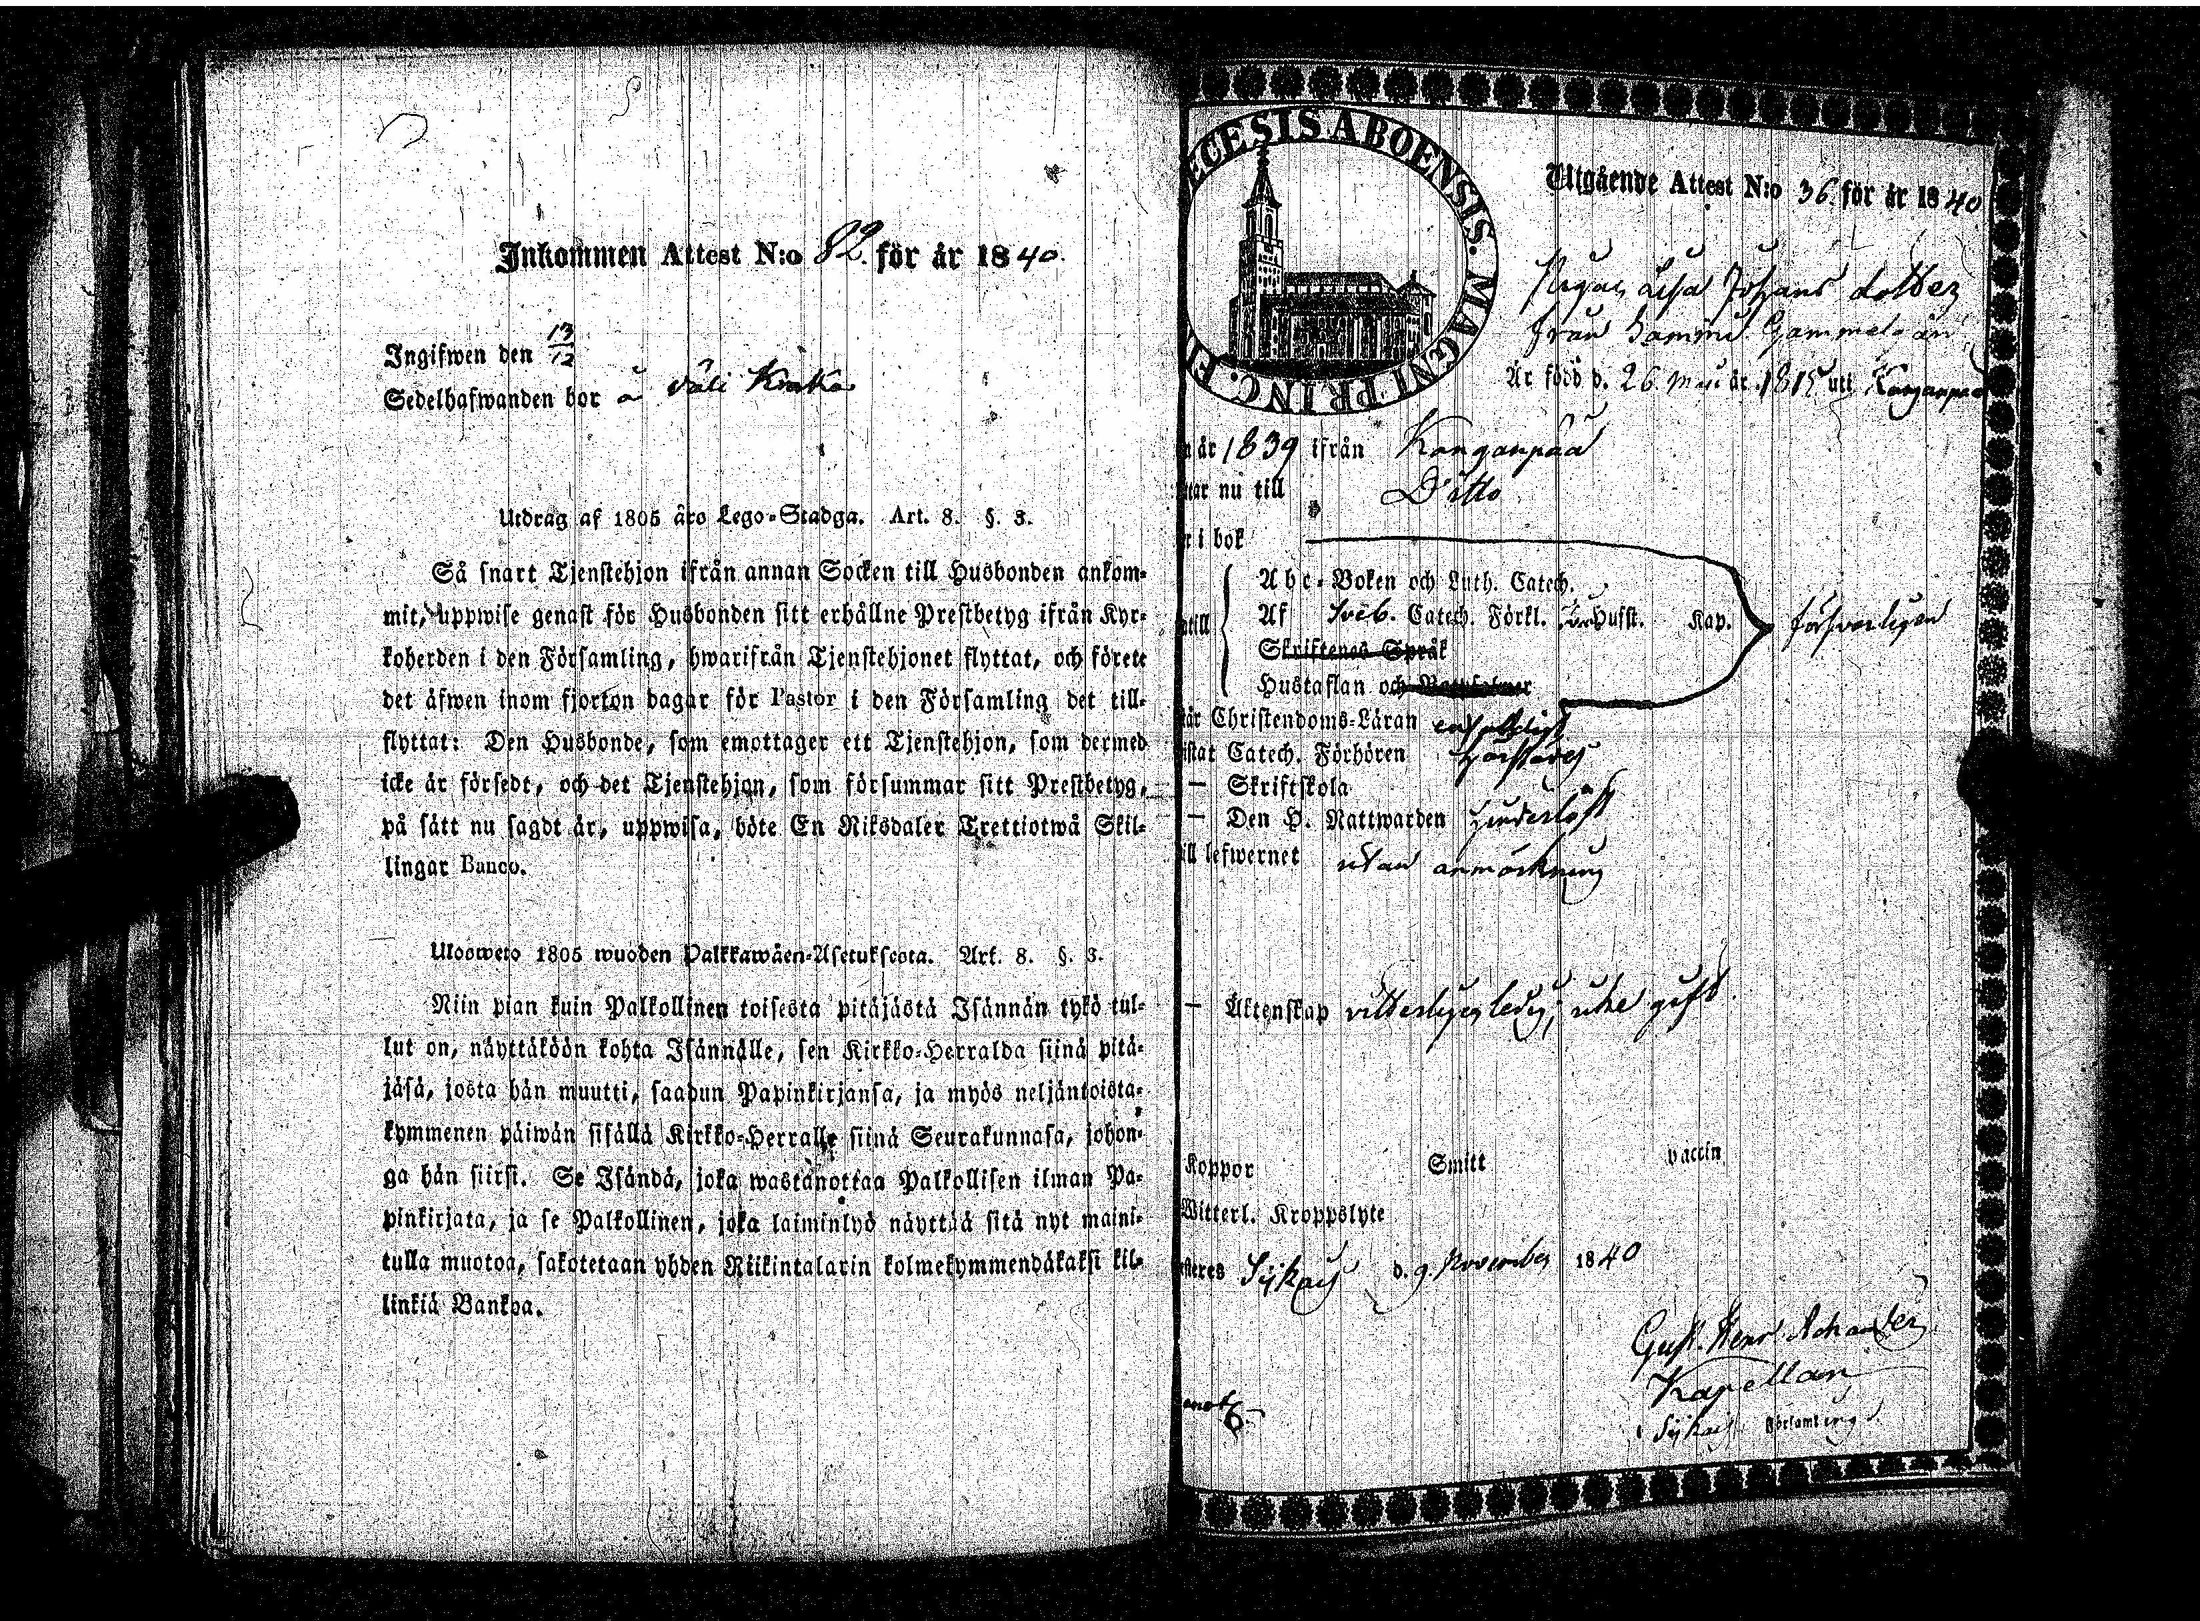 Inkommen Attest N:o 82. för år 1840.
Ingifwen den 13/12
Sedelhafwanden bor å
Utdrag af 1805 års Lego-Stadga. Art. 8. §. 3.
Så snart Tjenstehjon ifrån annan Socken till Husbonden ankom-
mit, uppwise genast för Husbonden sitt erhållne Prestbetyg ifrån Kyr-
koherden i den Församling, hwarifrån Tjenstehjonet flyttat, och förete
det äfwen inom fjorton dagar för Pastor i den Församling det till-
flyttat: Den Husbonde, som emottager ett Tjenstehjon, som dermed
icke är försedt, och det Tjenstehjon, som försummar sitt Prestbetyg,
på sätt nu sagdt är, uppwisa, böte En Riksdaler Trettiotwå Skil-
lingar Banco.
Ulosweto 1805 wuoden Palkkawäen-Asetuksesta. Art. 8. §. 3.
Niin pian kuin Palkollinen toisesta pitäjästä Isännän tykö tul-
lut on, näyttäköön kohta Isännälle, sen Kirkko-Herralda siinä pitä-
jäsä, josta hän muutti, saadun Papinkirjansa, ja myös neljäntoista-
kymmenen päiwän sisällä Kirkko-Herralle siinä Seurakunnasa, johon-
ga hän siirsi. Se Isändä, joka wastanottaa Palkollisen ilman Pa-
pinkirjata, ja se Palkollinen, joka laiminlyö näyttää sitä nyt maini-
tulla muotoa, sakotetaan yhden Riikintalarin kolmekymmendäkaksi kil-
linkiä Bankoa.
ECESIS ABOENSIS. MAGNI PRINC. FI
Utgående Attest N:o 36 för år 1840
Pigan Johans dotter
från Gammel
Är född d. 26 Maii år 1815 uti Kanganpää
år 1839 ifrån Kanganpää
tar nu till Ditto
r i bok
Abc-Boken och Luth. Catech.
till Af Sveb. Catech. Förkl. Husst. Kap. försvarligen
Skriftenes Språk
Hustaflan och
är Christendoms-Läran enfaldligt
istat Catech. Förhören
— Skriftskola
— Den H. Nattwarden hinderlöst
ill lefwernet utan anmärkning
— Äktenskap vitterligen ledig, gift.
Koppor Smitt vaccin
Witterl. Kroppslyte
steres d. 9 November 1840
Gust. Henr.
Kapellan
i Församling